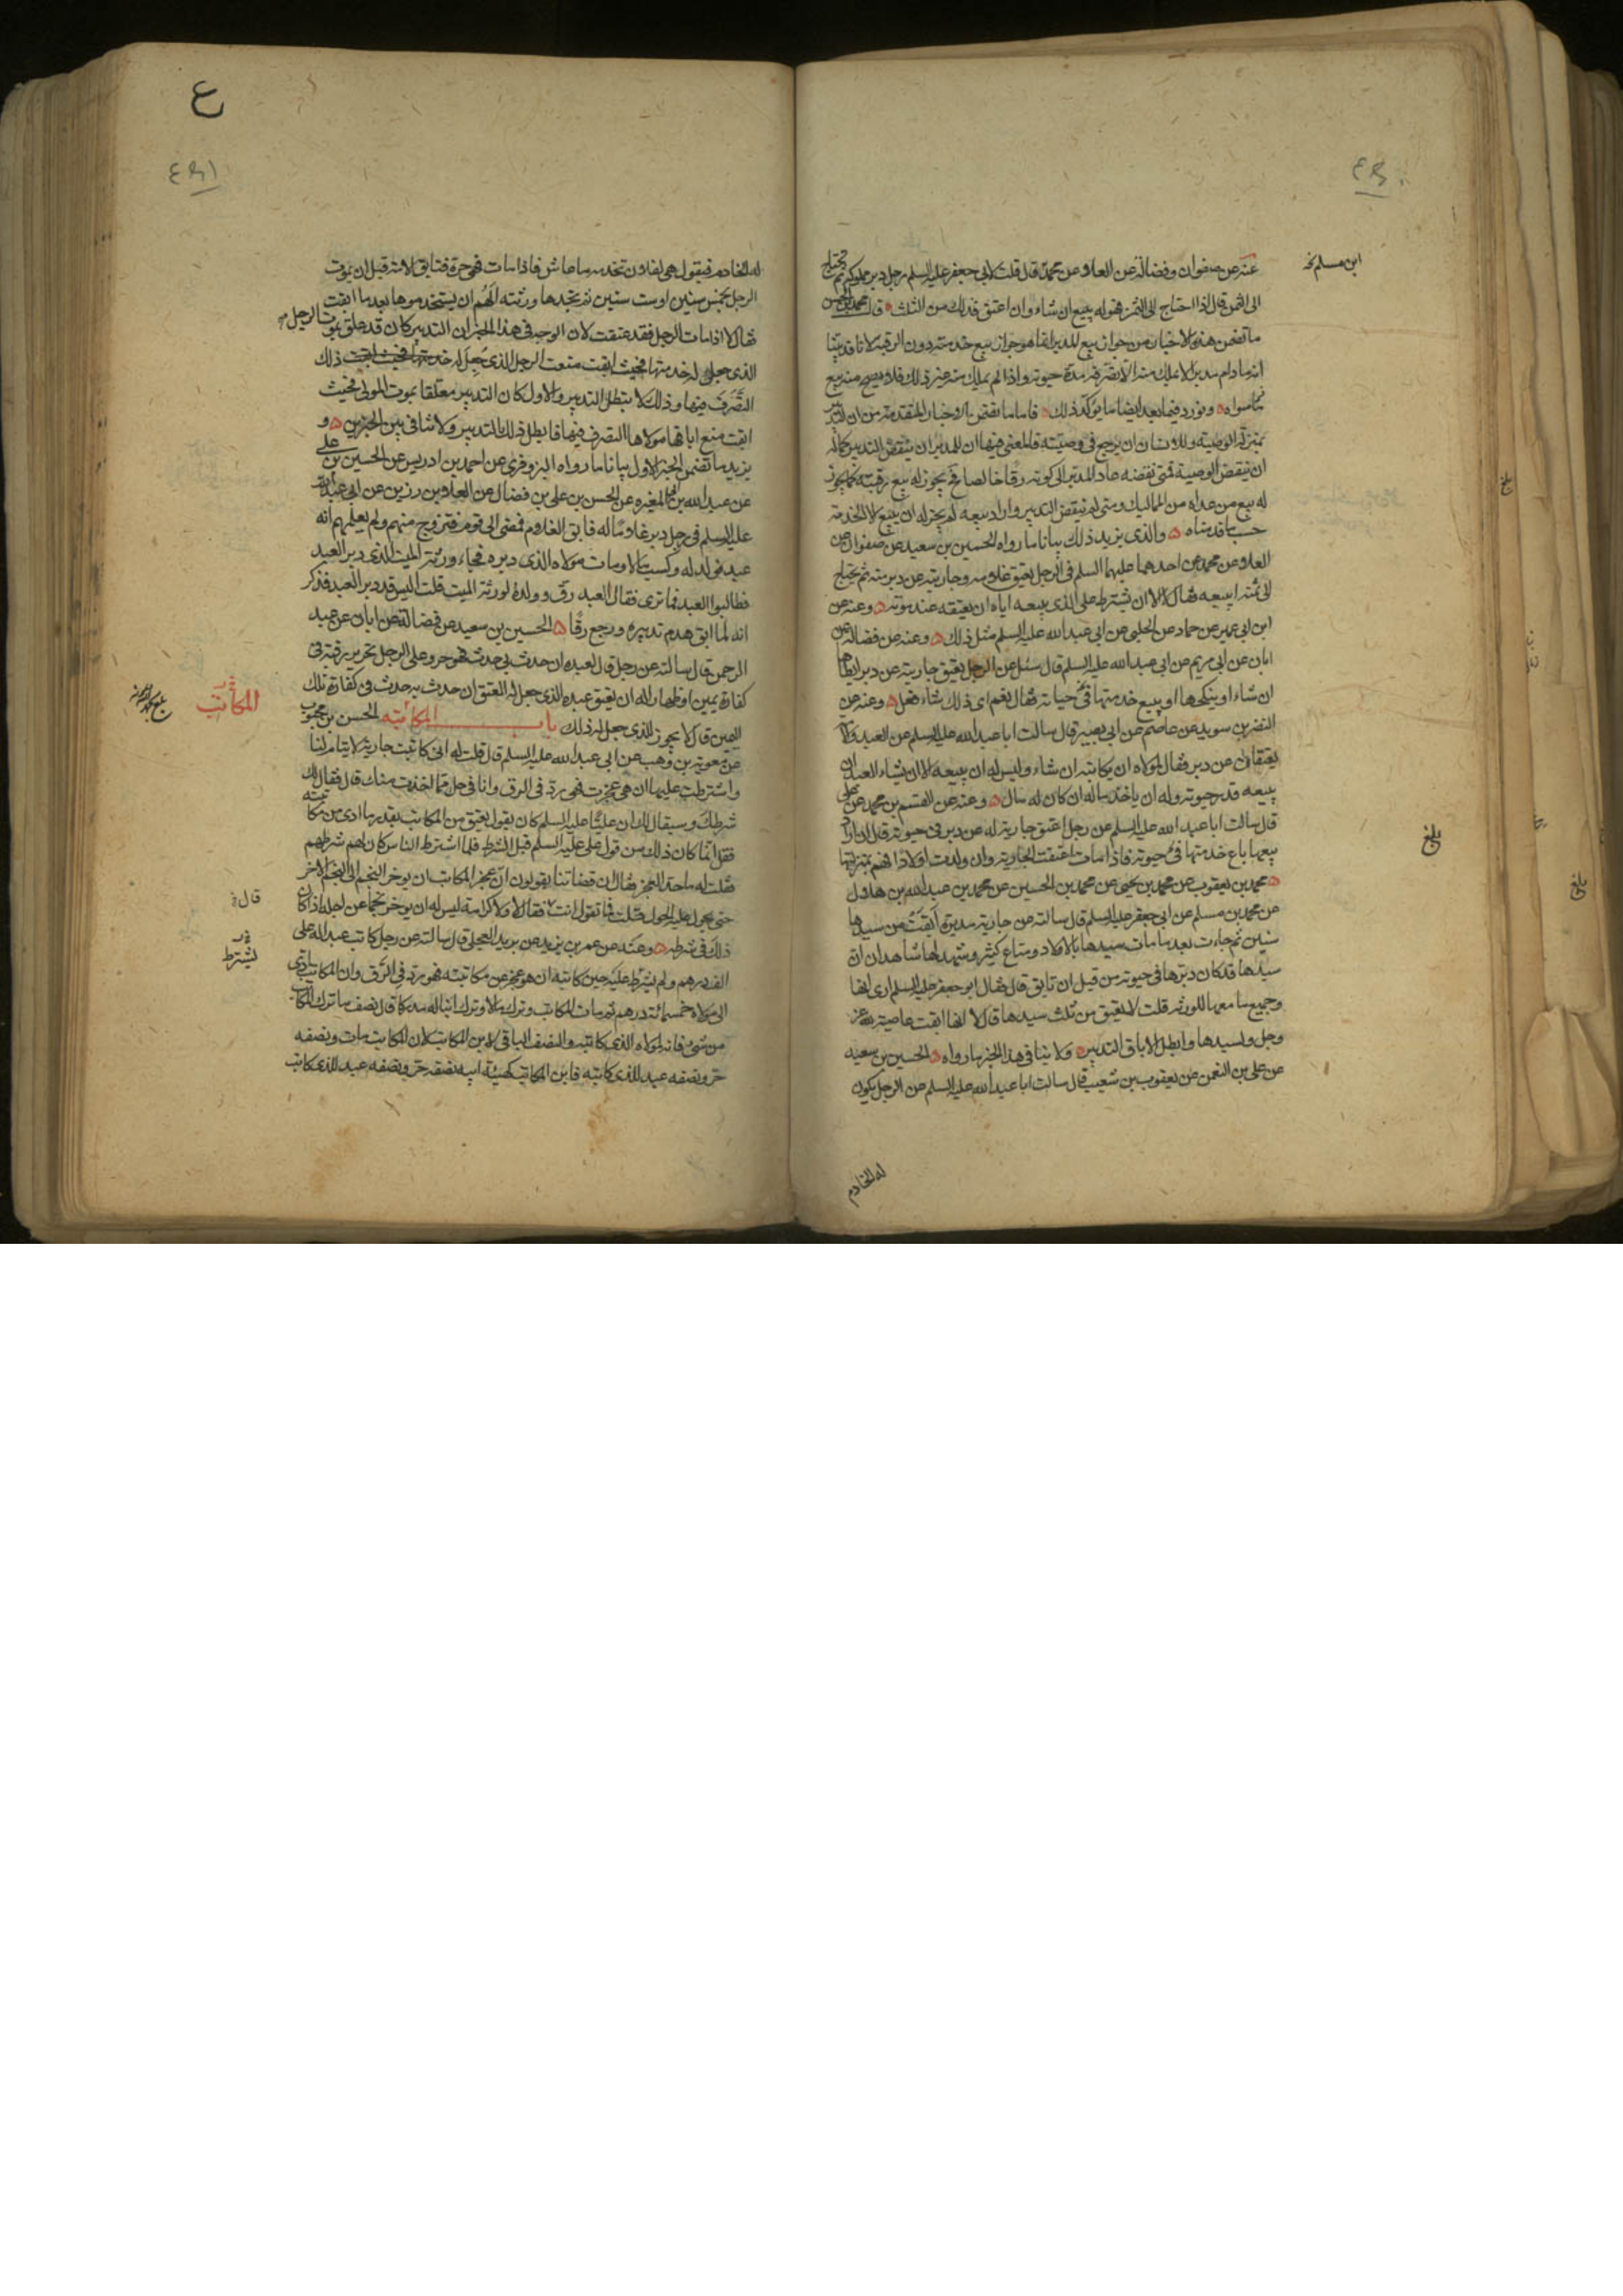 عنه عن صفوان وفضالة عن العلاء عن محمد قال قلت لابي جعفر عليه السلم رجل دبر مملوكه ثم يحتاج
ابن مسلم نخ
الى الثمن قال اذا احتاج الى الثمن فهو له يبيع ان شاء وان اعتق فذلك من الثلث قال محمد بن الحسن
ما تضمن هذه الاخبار من جواز بيع المدبر انما هو جواز بيع خدمته دون الرقبة لانا قد بينا
انه ما دام مدبرا لا يملك منه الا تصرفه مدة حيوته واذا لم يملك منه غير ذلك فلا يصح منه بيع
ما سواه ونورد فيما بعد ايضا ما يؤكد ذلك فاما ما تضمن الاخبار المتقدمة من ان التدبير
بمنزلة الوصية وللانسان ان يرجع في وصيته فالمعنى فيها ان للمدبر ان ينقض التدبير كما له
ان ينقض الوصية فمتى نقضه عاد المدبر الى كونه رقا خالصا يجوز له بيع رقبته كما يجوز
له بيع من عداه من المماليك ومتى لم ينقض التدبير واراد بيعه لم يجز له ان يبيع الا الخدمة
حسب ما قدمناه والذي يزيد ذلك بيانا ما رواه الحسين بن سعيد عن صفوان عن
العلاء عن محمد عن احدهما عليهما السلم في الرجل يعتق غلامه وجاريته عن دبر منه ثم يحتاج
الى ثمنه ايبيعه فقال لا الا ان يشترط على الذي يبيعه اياه ان يعتقه عند موته وعنه عن
ابن ابي عمير عن حماد عن الحلبي عن ابي عبد الله عليه السلم مثل ذلك وعنه عن فضالة عن
ابان عن ابي مريم عن ابي عبد الله عليه السلم قال سئل عن الرجل يعتق جاريته عن دبر ايطاها
ان شاء او ينكحها او يبيع خدمتها في حياته فقال نعم اي ذلك شاء فعل وعنه عن
النضر بن سويد عن عاصم عن ابي بصير قال سالت ابا عبد الله عليه السلم عن العبد والامة
يعتقان عن دبر فقال لمولاه ان يكاتبه ان شاء وليس له ان يبيعه الا ان يشاء العبد ان
يبيعه قدر حيوته وله ان ياخذ ماله ان كان له مال وعنه عن القسم بن محمد عن علي
قال سالت ابا عبد الله عليه السلم عن رجل اعتق جارية له عن دبر في حيوته قال ان اراد
بيعها باع خدمتها في حيوته فاذا مات اعتقت الجارية وان ولدت اولادا فهم بمنزلتها
محمد بن يعقوب عن محمد بن يحيى عن محمد بن الحسين عن محمد بن عبد الله بن هلال
عن محمد بن مسلم عن ابي جعفر عليه السلم قال سالته عن جارية مدبرة ابقت من سيدها
سنين ثم جاءت بعد ما مات سيدها باولاد ومتاع كثير وشهد لها شاهدان ان
سيدها قد كان دبرها في حيوته من قبل ان تابق قال فقال ابو جعفر عليه السلم ارى انها
وجميع ما معها للورثة قلت لا تعتق من ثلث سيدها قال لا انها ابقت عاصية لله عز
وجل ولسيدها وابطل الاباق التدبير ولا ينافي هذا الخبر ما رواه الحسين بن سعيد
عن علي بن النعمن عن يعقوب بن شعيب قال سالت ابا عبد الله عليه السلم عن الرجل يكون
له الخادم
بلغ
ع
له الخادم فيقول هي لفلان تخدمه ما عاش فاذا مات فهي حرة فتابق الامة قبل ان يموت
الرجل بخمس سنين او ست سنين ثم يجدها ورثته الهم ان يستخدموها بعد ما ابقت
فقال لا اذا مات الرجل فقد عتقت لان الوجه في هذا الخبر ان التدبير كان قد علق بموت الرجل
الذي جعل له خدمتها فحيث ابقت منعت الرجل الذي جعل له خدمتها ذلك
التصرف فيها وذلك لا يبطل التدبير والاول كان التدبير معلقا بموت المولى فحيث
ابقت منع اباقها مولاها التصرف فيها فابطل ذلك التدبير ولا تنافي بين الخبرين و
يزيد ما تضمن الخبر الاول بيانا ما رواه البزوفري عن احمد بن ادريس عن الحسين بن علي
عن عبد الله بن المغيرة عن الحسن بن علي بن فضال عن العلاء بن رزين عن ابي عبد الله
عليه السلم في رجل دبر غلاما له فابق الغلام فمضى الى قوم فتزوج منهم ولم يعلمهم انه
عبد فولد له وكسب مالا ومات مولاه الذي دبره فجاء ورثة الميت الذي دبر العبد
فطالبوا العبد فما ترى فقال العبد رق وولده لورثة الميت قلت اليس قد دبر العبد فذكر
انه لما ابق هدم تدبيره ورجع رقا الحسين بن سعيد عن فضالة عن ابان عن عبد
الرحمن قال سالته عن رجل قال لعبده ان حدث بي حدث فهو حر وعلى الرجل تحرير رقبة في
كفارة يمين او ظهار اله ان يعتق عبده الذي جعل له العتق ان حدث به حدث في كفارة تلك
المكاتب
اليمين قال لا يجوز للذي جعل له ذلك باب المكاتبه الحسن بن محبوب
عن معوية بن وهب عن ابي عبد الله عليه السلم قال قلت له اني كاتبت جارية لايتام لنا
واشترطت عليها ان هي عجزت فهي رد في الرق وانا في حل مما اخذت منك قال فقال لك
شرطك وسيقال لك ان عليا عليه السلم كان يقول يعتق من المكاتب بقدر ما ادى من مكاتبته
فقل انما كان ذلك من قول علي عليه السلم قبل الشرط فلما اشترط الناس كان لهم شرطهم
فقلت له ما حد العجز فقال ان قضاتنا يقولون ان عجز المكاتب ان يوخر النجم الى النجم الاخر
حتى يحول عليه الحول قلت فما تقول انت فقال لا ولا كرامة ليس له ان يوخر نجما عن اجله اذا كان
قال
ذلك في شرطه وعنه عن عمر بن يزيد عن بريد العجلي قال سالته عن رجل كاتب عبدا له على
الف درهم ولم يشترط عليه حين كاتبه ان هو عجز عن مكاتبته فهو رد في الرق وان المكاتب ادى
يشترط
الى مولاه خمسمائة درهم ثم مات المكاتب وترك مالا وترك ابنا له مدركا قال نصف ما ترك المكاتب
من شيء فانه لمولاه الذي كاتبه والنصف الباقي لابن المكاتب لان المكاتب مات ونصفه
حر ونصفه عبد للذي كاتبه فابن المكاتب كهيئة ابيه نصفه حر ونصفه عبد للذي كاتب